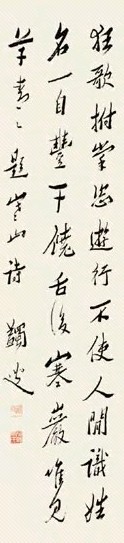 狂歌拊掌恣遊行不使人間識姓
名一自豐干饒舌後寒巖唯見
草青々 題寒山詩 蠲叟